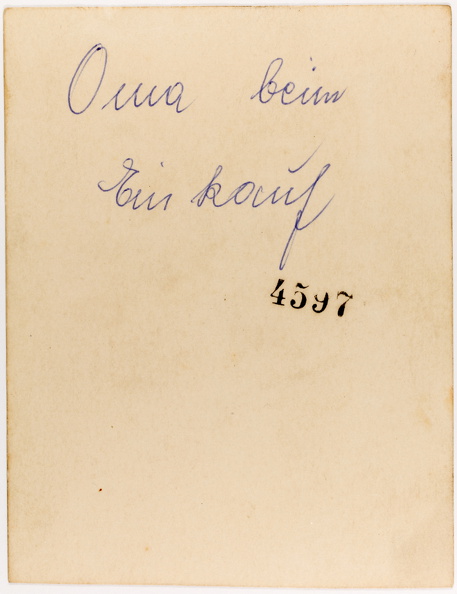 Oma beim
Einkauf
4597